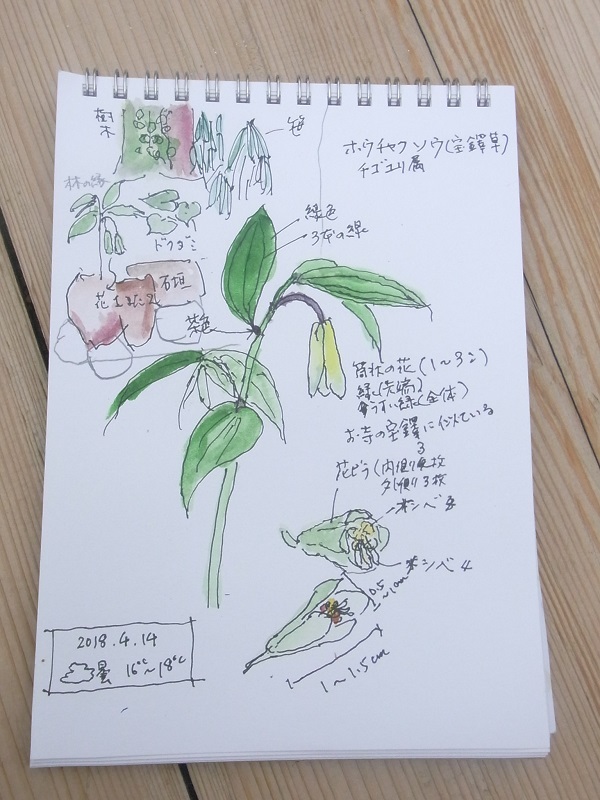 樹木
笹
ホウチャクソウ(宝鐸草)
チゴユリ属
林の縁
ドクダミ
石垣
花
茶色
緑色
3本の線
筒状の花(1〜3コ)
緑(先端)
うすい緑(全体)
お寺の宝鐸に似ている
花びら(内側3枚
外側3枚
オシベ
メシベ
0.5
〜1cm
1〜1.5cm
2018.4.14
曇 16℃〜18℃